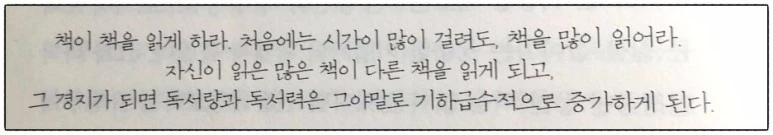 책이 책을 읽게 하라. 처음에는 시간이 많이 걸려도, 책을 많이 읽어라.
자신이 읽은 많은 책이 다른 책을 읽게 되고,
그 경지가 되면 독서량과 독서력은 그야말로 기하급수적으로 증가하게 된다.